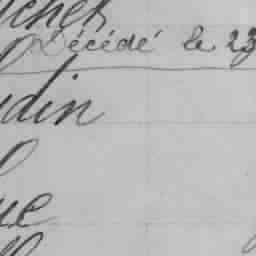 cher
Décédé le 23
din
ue